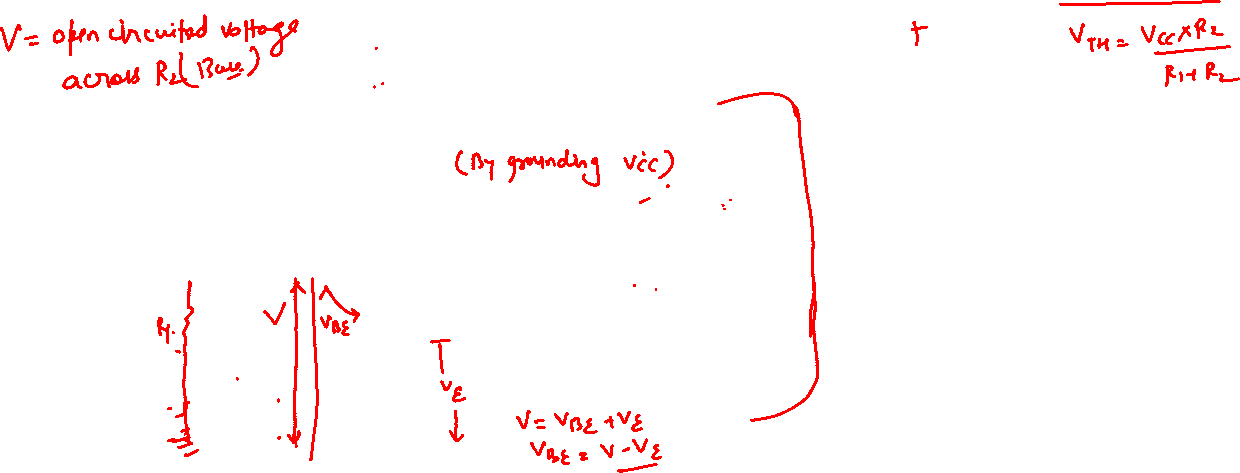 V = open circuited voltage
across R2 (Base)
+
VTH = VCC × R2
R1 + R2
(By grounding VCC)
V
VBE
VE
V = VBE + VE
VBE = V - VE